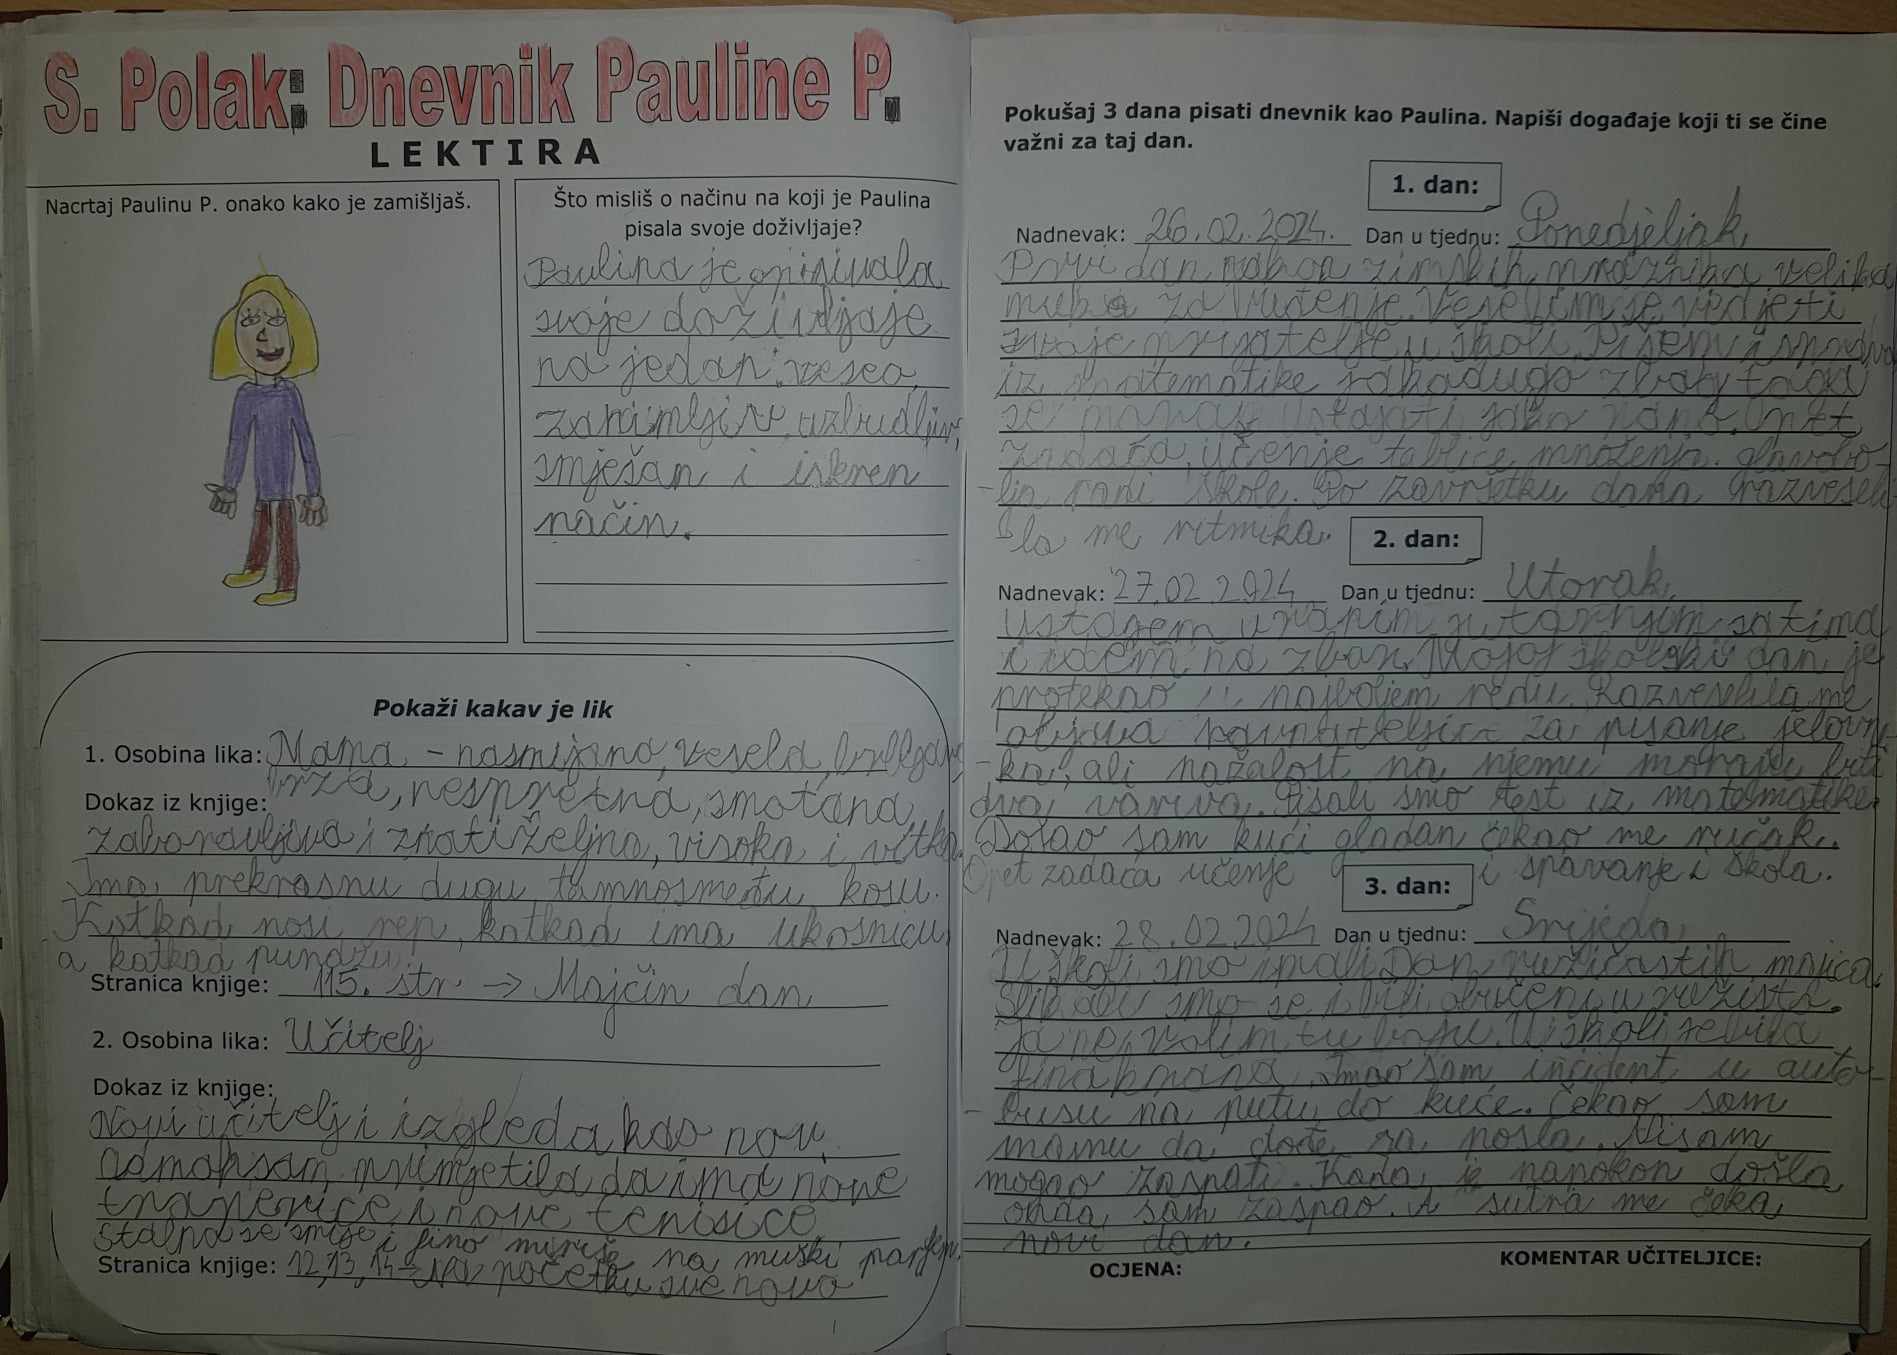 S. Polak: Dnevnik Pauline P.
LEKTIRA
Nacrtaj Paulinu P. onako kako je zamišljaš.
Što misliš o načinu na koji je Paulina
pisala svoje doživljaje?
Paulina je opisivala
svoje doživljaje
na jedan veseo,
zanimljiv, uzbudljiv,
smješan i iskren
način.
Pokaži kakav je lik
1. Osobina lika: Mama - nasmijana, vesela, brbljava,
brza, nespretna, smotana,
Dokaz iz knjige:
zaboravljiva i znatiželjna, visoka i vitka.
Ima prekrasnu dugu tamnosmeđu kosu.
Katkad nosi rep, katkad ima ukosnicu,
a katkad punđu.
Stranica knjige: 115. str. → Majčin dan
2. Osobina lika: Učitelj
Dokaz iz knjige:
Novi učitelj i izgleda kao nov.
Odmah sam primjetila da ima nove
traperice i nove tenisice
Stalno se smije i fino miriše na muški parfem.
Stranica knjige: 12,13,14 → Na početku sve novo
Pokušaj 3 dana pisati dnevnik kao Paulina. Napiši događaje koji ti se čine
važni za taj dan.
1. dan:
Nadnevak: 26.02.2024. Dan u tjednu: Ponedjeljak
Prvi dan nakon zimskih praznika velika
muka za buđenje. Veselim se vidjeti
svoje prijatelje u školi. Pišem
iz matematike zbog toga
se moram ustajati jako rano. Opet
zadaća, učenje tablice množenja. glavobo-
-lja rani škole. Po završetku dana razveseli-
la me ritmika.
2. dan:
Nadnevak: 27.02.2024 Dan u tjednu: Utorak
Ustajem u ranim jutarnjim satima
i idem na zbor. Mojoj školski dan je
protekao u najboljem redu. Razveselila me
objava ravnateljice za pisanje jelovni-
-ka, ali nažalost na njemu moraju biti
dva variva. Pisali smo test iz matematike.
Došao sam kući gladan čekao me ručak.
Opet zadaća učenje i spavanje i škola.
3. dan:
Nadnevak: 28.02.2024 Dan u tjednu: Srijeda
U školi smo imali Dan ružičastih majica.
Slikali smo se i bili obučeni u
Ja ne volim tu boju. U školi je bila
fina hrana. Imao sam incident u auto-
-busu na putu do kuće. Čekao sam
mamu da dođe sa posla. Nisam
mogao zaspati. Kada je napokon došla
onda sam zaspao. A sutra me čeka
novi dan.
OCJENA:
KOMENTAR UČITELJICE: